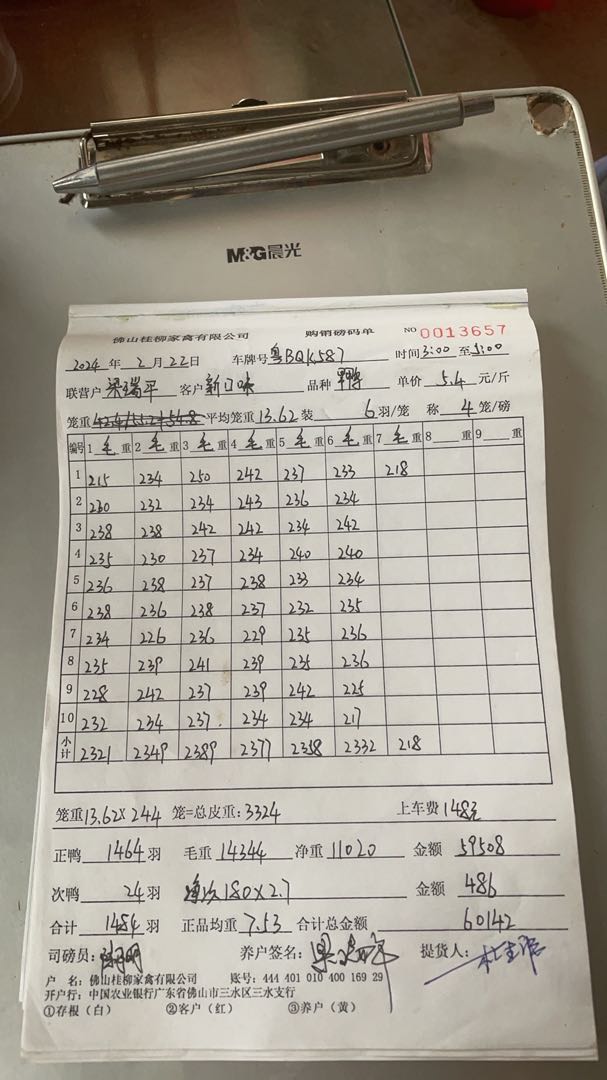 M&G晨光
佛山桂柳家禽有限公司 购销磅码单 NO 0013657
2024 年 2 月 22 日 车牌号 粤BQK587 时间 3:00 至 5:00
联营户 梁瑞平 客户 新口味 品种 单价 5.4 元/斤
笼重 平均笼重 13.62 装 6 羽/笼 称 4 笼/磅
编号 1 毛 重 2 毛 重 3 毛 重 4 毛 重 5 毛 重 6 毛 重 7 毛 重 8 重 9 重
1 215 234 250 242 237 233 218
2 230 232 234 243 236 234
3 238 238 242 242 234 242
4 235 230 237 234 240 240
5 236 238 237 238 233 234
6 238 236 238 237 232 235
7 234 226 236 229 235 236
8 235 239 241 239 235 236
9 228 242 237 239 242 225
10 232 234 237 234 234 217
小计 2321 2349 2389 2377 2358 2332 218
笼重 13.62× 244 笼=总皮重: 3324 上车费 148元
正鸭 1464 羽 毛重 14344 净重 11020 金额 59508
次鸭 24 羽 180×2.7 金额 486
合计 1484 羽 正品均重 7.53 合计总金额 60142
司磅员: 养户签名: 提货人:
户 名: 佛山桂柳家禽有限公司 账号: 444 401 010 400 169 29
开户行: 中国农业银行广东省佛山市三水区三水支行
①存根(白) ②客户(红) ③养户(黄)